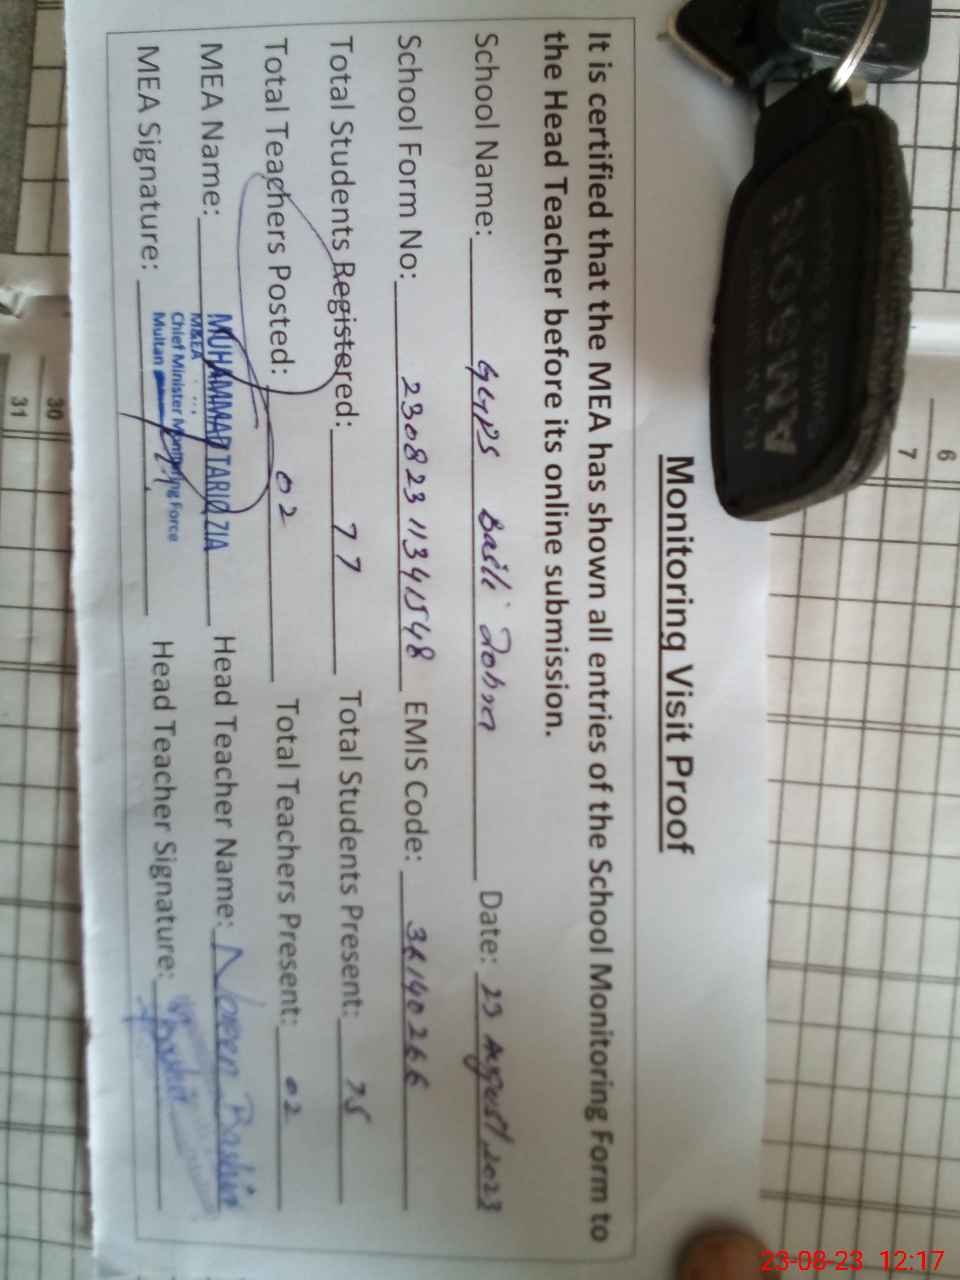 Monitoring Visit Proof
It is certified that the MEA has shown all entries of the School Monitoring Form to
the Head Teacher before its online submission.
School Name: GGPS Basti Date: 23 August, 2023
School Form No: 23082311341548 EMIS Code: 36140266
Total Students Registered: 77 Total Students Present: 75
Total Teachers Posted: 02 Total Teachers Present: 02
MEA Name: MUHAMMAD TARIQ ZIA Head Teacher Name: Noreen Bashir
M&EA
Chief Minister Monitoring Force
Multan
MEA Signature: Head Teacher Signature:
6
7
30
31
23-08-23 12:17